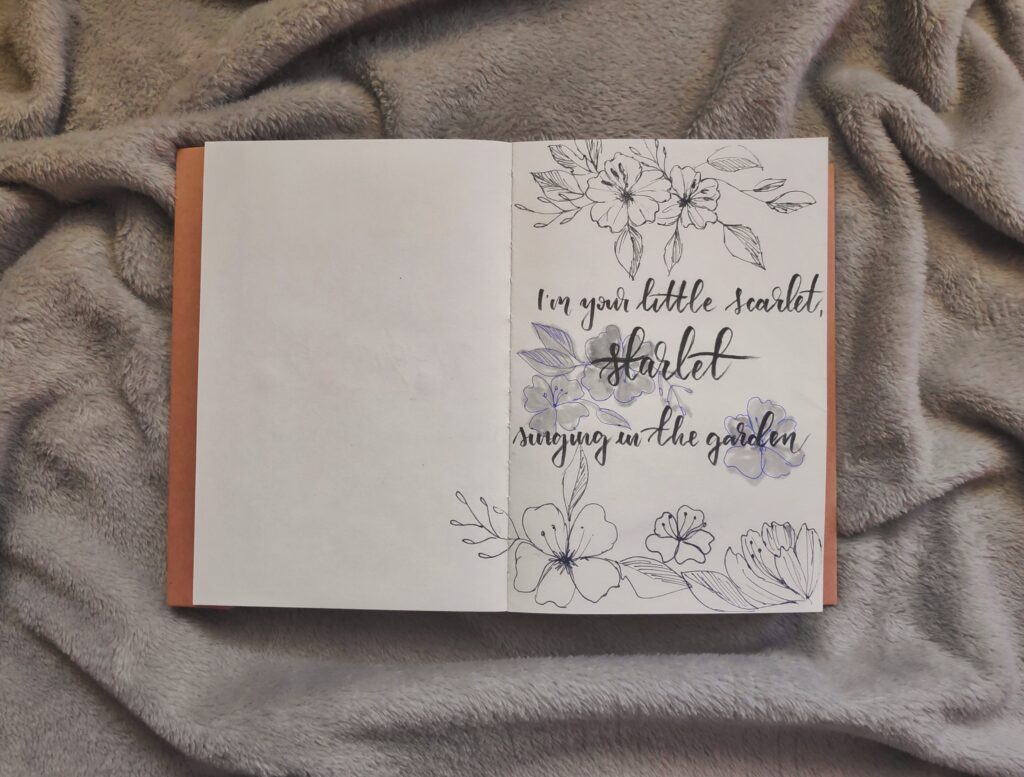 I'm your little scarlet,
starlet
singing in the garden